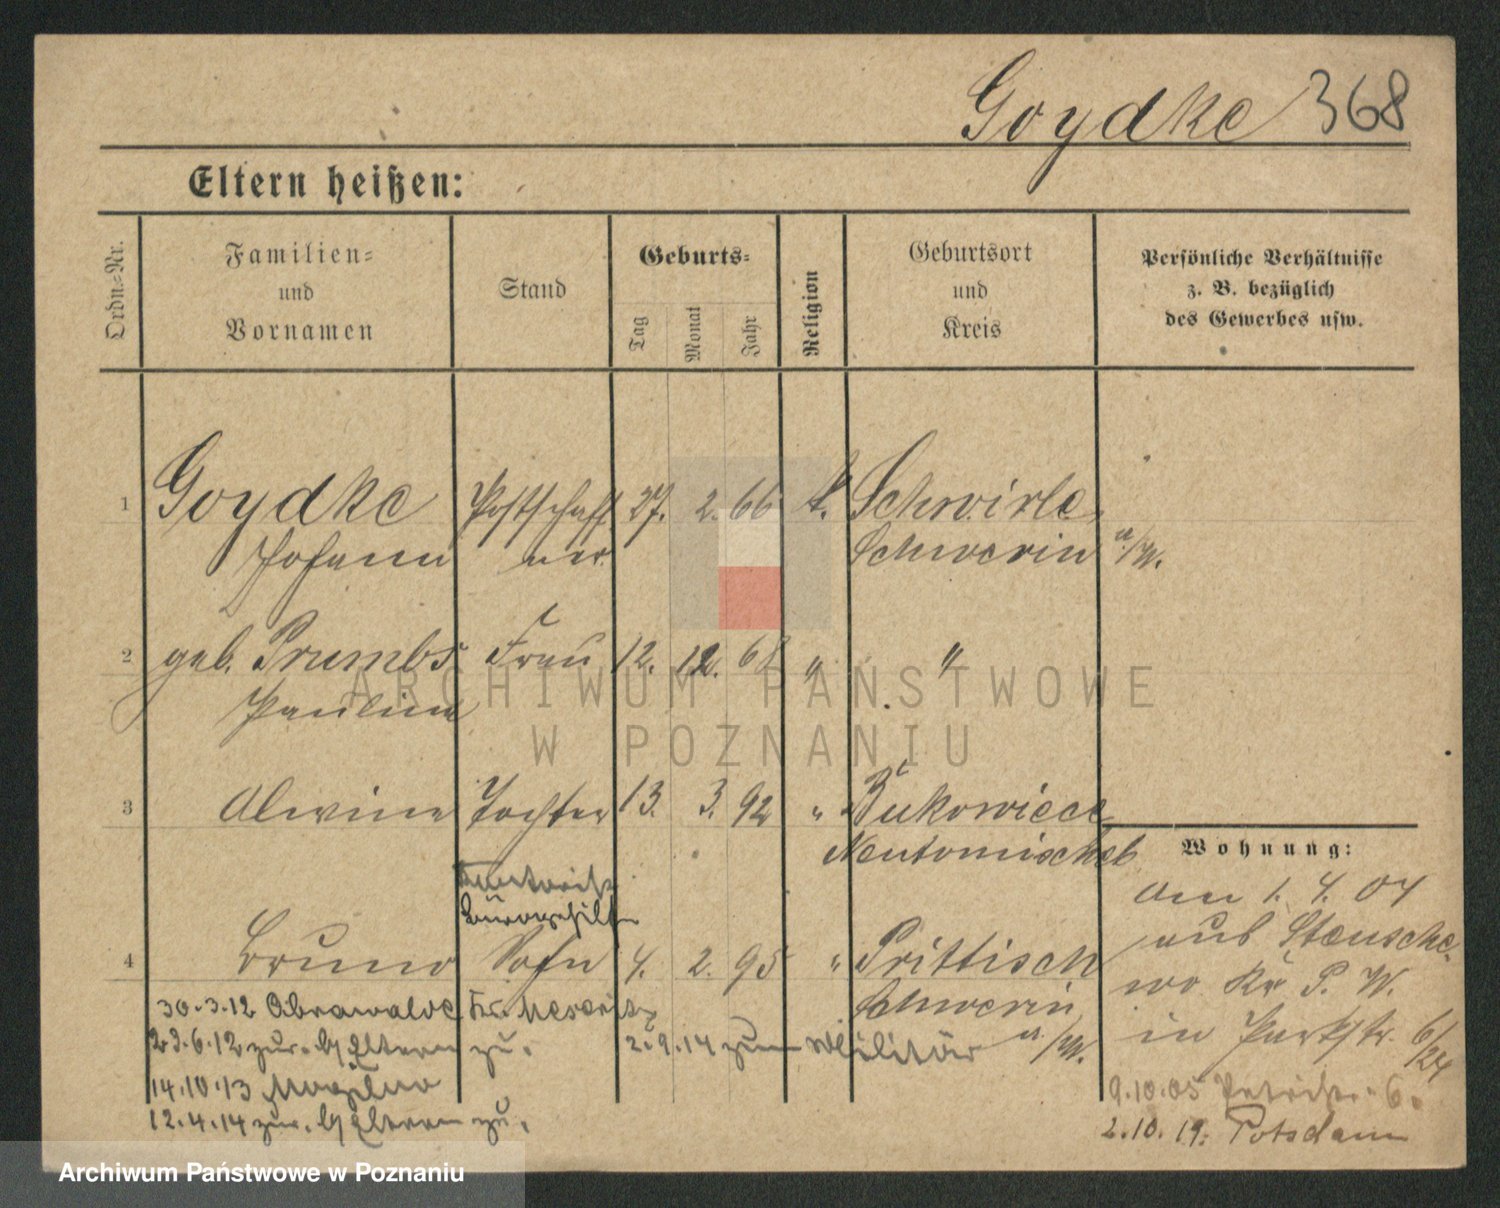 Goydke 368
Eltern heißen:
Ordn.-Nr.
Familien-
und
Vornamen
Stand
Geburts-
Tag
Monat
Jahr
Religion
Geburtsort
und
Kreis
Persönliche Verhältnisse
z. B. bezüglich
des Gewerbes usw.
1 Goydke Postschaff 27. 2. 66 k. Schwirle,
Johann ner Schwerin a/W.
2 geb. Prumbs Frau 12. 12. 68 " "
Pauline
3 Alwine Tochter 13. 3. 92 " Bukowiece,
Neutomischel
Bürogehilfe
4 Bruno Sohn 4. 2. 95 " Prittisch
Schwerin
a/W.
30.3.12 Obrawalde Kr. Meseritz
23.6.12 zur. bei Eltern zu.
2.9.14 zum Militär
14.10.13 Mogilno
12.4.14 zur. bei Eltern zu.
Wohnung:
Am 1. 4. 04
aus Stensche-
wo Kr P. W.
in Parkstr. 6/24
9.10.05 6.
2.10.19. Potsdam
ARCHIWUM PAŃSTWOWE
W POZNANIU
Archiwum Państwowe w Poznaniu